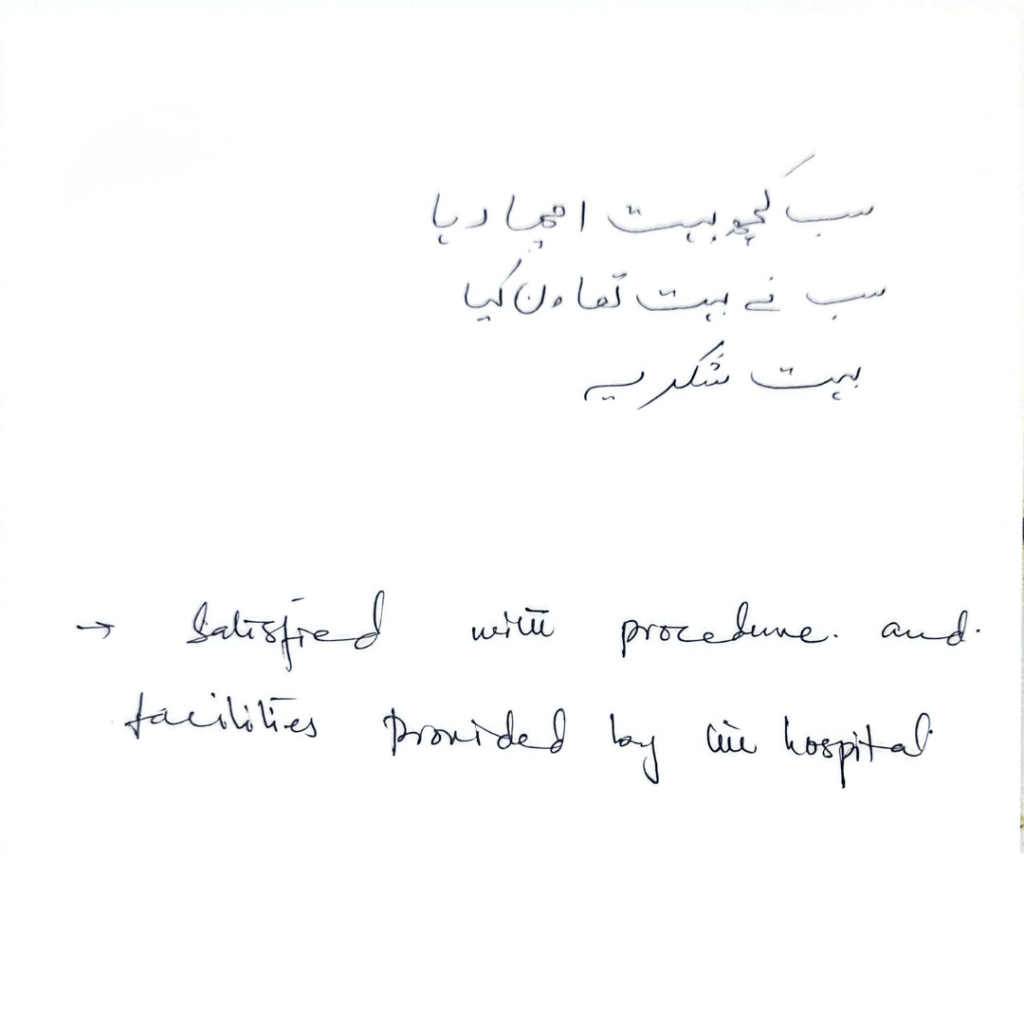 سب کچھ بہت اچھا رہا
سب نے بہت تعاون کیا
بہت شکریہ
→ Satisfied with procedure. and.
facilities provided by the hospital